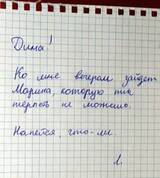 Дима!
Ко мне вечером зайдет
Марина, которую ты
терпеть не можешь.
Напейся, что-ли.
Л.